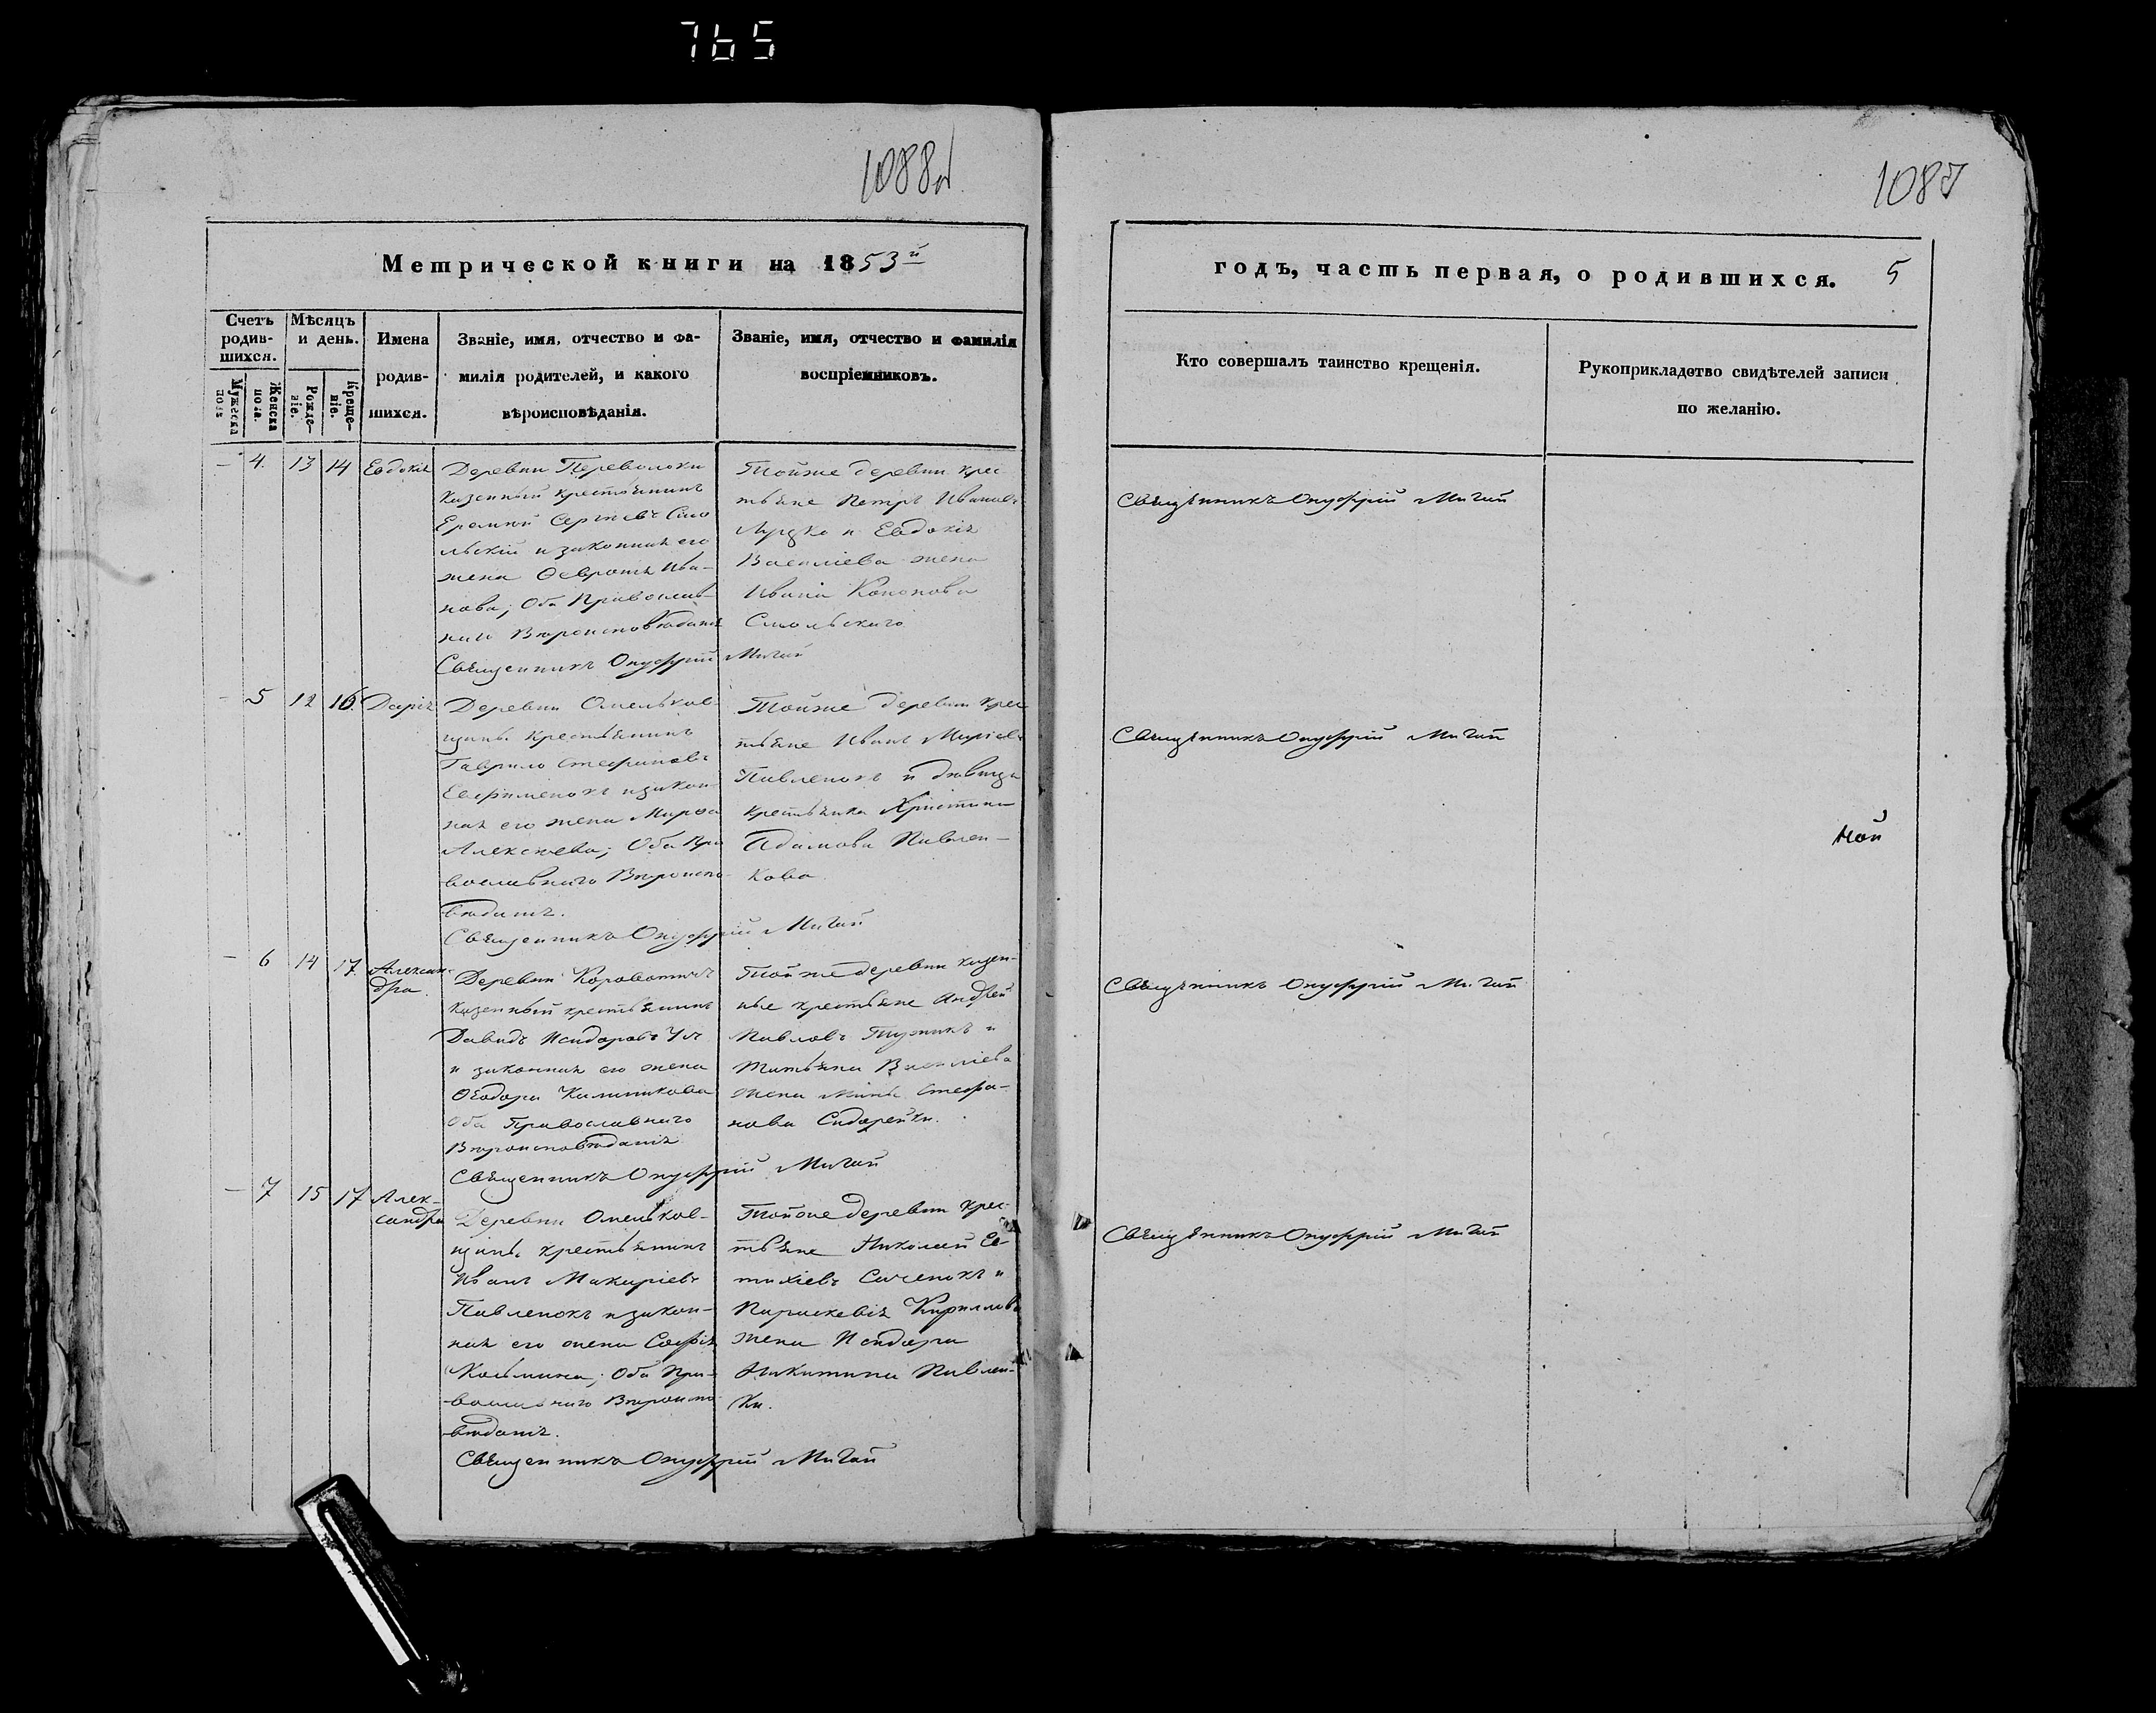 765
1088
1087
Метрической книги на 1853й
годъ, часть первая, о родившихся. 5
Счетъ родив-шихся.
Мужеска пола
Женска пола.
Мѣсяцъ и день.
Рожде-ніе.
Креще-ніе.
Имена
родив-
шихся.
Званіе, имя, отчество и фа-
милія родителей, и какого
вѣроисповѣданія.
Званіе, имя, отчество и фамилія
воспріемниковъ.
Кто совершалъ таинство крещенія.
Рукоприкладство свидѣтелей записи
по желанію.
— 4. 13 14 Евдокія
Деревни Переволоки
казенный крестьянинъ
Еремей Сергѣевъ Смо
льскій и законная его
жена Ѳеврония Ива-
нова; Оба Православ-
наго Вѣроисповѣданія
Священникъ Онуфрій Мигай
Тойже деревни крес
тьяне Петръ Ивановъ
Луцко и Евдокія
Василіева жена
Ивана Кононова
Смольскаго
Священникъ Онуфрій Мигай
— 5 12 16. Дарія
Деревни Омельков-
щины крестьянинъ
Гаврило Стефановъ
Евфименокъ и закон-
ная его жена Марѳа
Алексѣева; Оба Пра
вославнаго Вѣроиспо-
вѣданія.
Священникъ Онуфрій Мигай
Тойже деревни крес
тьяне Иванъ
Павленокъ и дѣвица
крестьянка Христина
Адамова Павлен-
кова.
Священникъ Онуфрій Мигай
ной
— 6 14 17. Алексан-
дра.
Деревни Короватичъ
казенный крестьянинъ
Давидъ Исидоровъ
и законная его жена
Ѳеодора Калинникова
Оба Православнаго
Вѣроисповѣданія
Священникъ Онуфрій Мигай
Тойже деревни казен-
ные крестьяне Андрей
Павловъ и
Татьяна Василіева
жена Мины Стефа-
нова Сидорейки.
Священникъ Онуфрій Мигай
— 7 15 17 Алек-
сандра
Деревни Омельков-
щины крестьянинъ
Иванъ Макаріевъ
Павленокъ и закон-
ная его жена Софія
Косьмина; Оба Пра-
вославнаго Вѣроиспо-
вѣданія.
Священникъ Онуфрій Мигай
Тойже деревни крес-
тьяне Николай Ев-
тихіевъ Саченокъ и
Параскевія Кириллова
жена Исидора
Никитина Павлен-
ки.
Священникъ Онуфрій Мигай